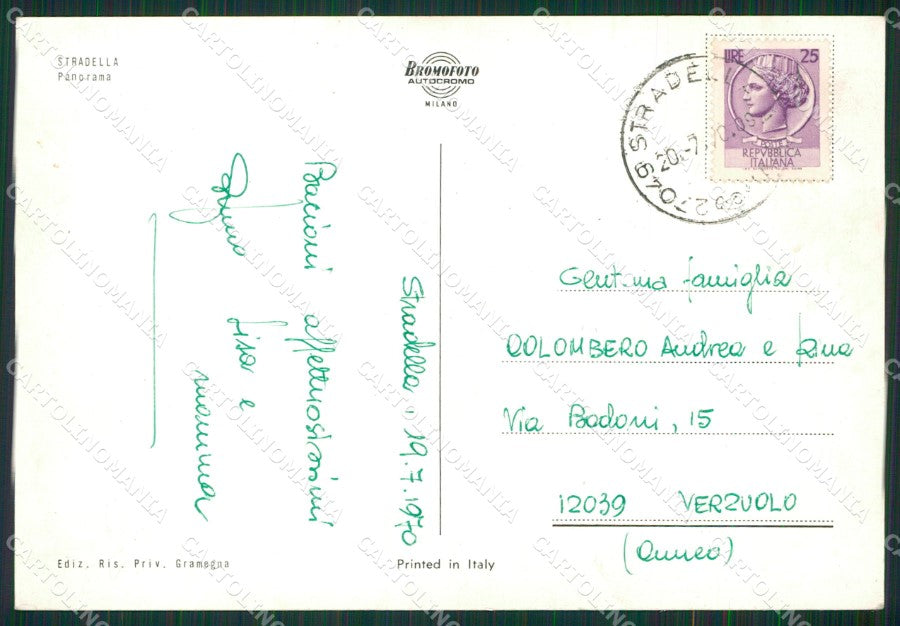 STRADELLA
Panorama
BROMOFOTO
AUTOCROMO
MILANO
LIRE 25
POSTE
REPVBBLICA
ITALIANA
27049 STRADELLA
20.7.70
Stradella, 19.7.1970
Bacioni affettuosissimi
Lisa e
mamma
Gent.ma famiglia
COLOMBERO Andrea e
Via Badoni, 15
12039 VERZUOLO
(Cuneo)
Ediz. Ris. Priv. Gramegna
Printed in Italy
CARTOLINOMANIA